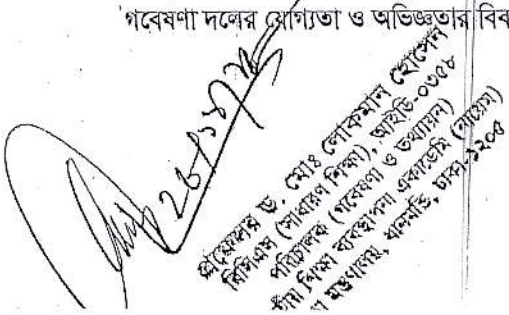 গবেষণা দলের যোগ্যতা ও অভিজ্ঞতার বিব
প্রফেসর ড. মোঃ লোকমান হোসেন
বিসিএস (সাধারণ শিক্ষা), আইডি-০৩৫৮
পরিচালক (গবেষণা ও তথ্যায়ন)
শিক্ষা ব্যবস্থাপনা একাডেমি (নায়েম)
মন্ত্রণালয়, ধানমন্ডি, ঢাকা-১২০৫